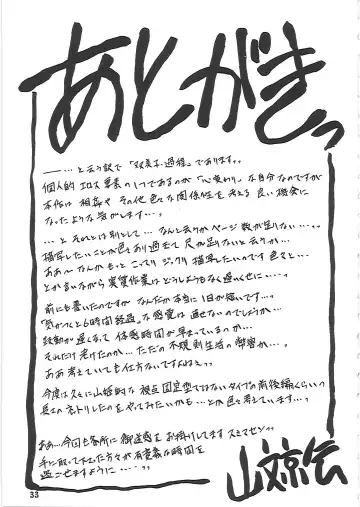 あとがきっ
―――…と云う訳で「双美子・過程」であります。
個人的エロス要素の1つであるが「心変わり」な自分なのですが
本作は相姦やその他色々な関係性を考える良い機会に
なったような気がします…。
…とそれとは別として…なんと云うかページ数が足りない…。
描写したいことが色々あり過ぎて尺が足りないと云うか…
ああ〜なんかもっとこってりジックリ描写したいのです色々と…
とか言いながら実質作業はどうしようもなく遅いくせに…。
前にも書いたのですがなんだか本当に1日が短いです…。
「気がつくと6時間経過」な感覚は直せないのでしょうか…
鼓動が遅くなって体感時間が早まっているのか…
それだけ老けたのか…ただの不規則生活の弊害か…。
ああ考えていても仕方ないですよねぇ。
今度は久々に山娘的な視点固定型ではないタイプの前後編くらいの
長さのネトリしたのをやってみたいかも…とか色々考えています…。
ああ…今回も各所に御迷惑をお掛けしてますスミマセン。
手に取って下さった方々が有意義な時間を
過ごせますように……。
山文京伝
33